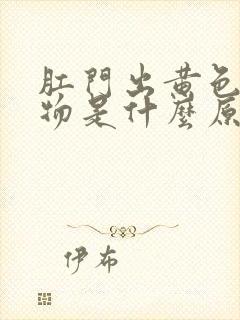 肛門出黄色
物是什麼原
伊布